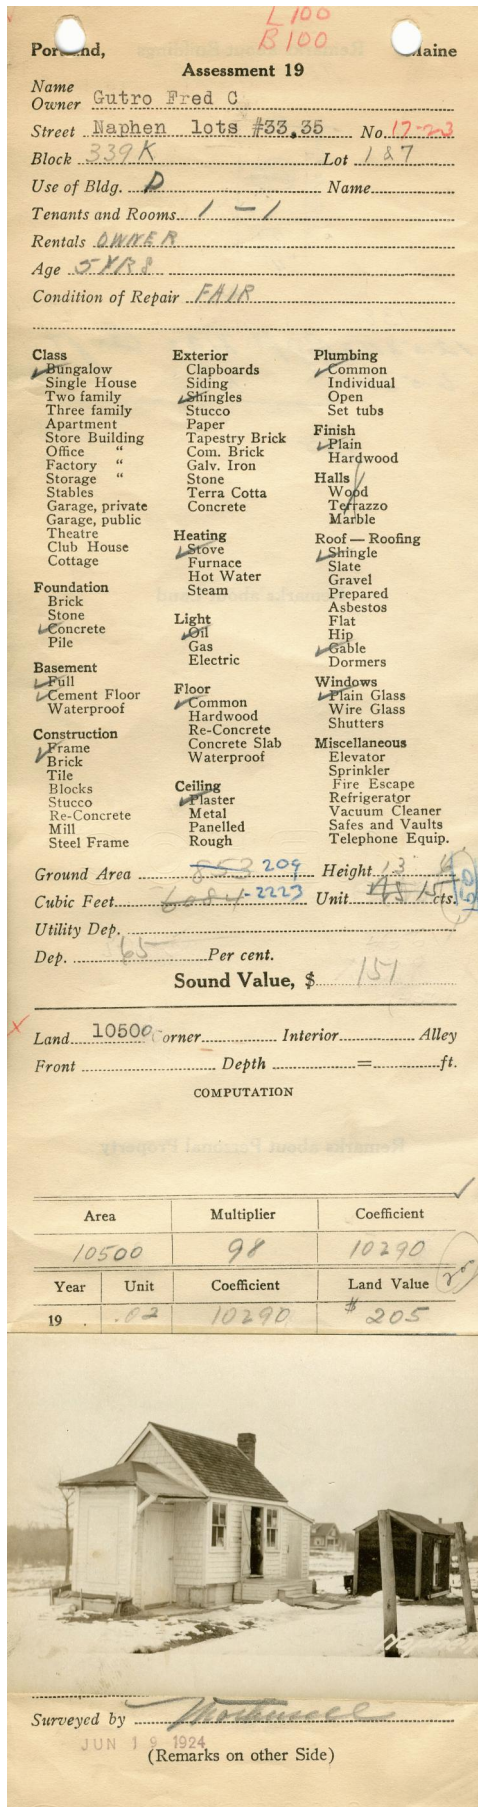 L 100
B 100
Portland, Maine
Assessment 19
Name
Owner Gutro Fred C
Street Naphen lots #33.35 No. 17-23
Block 339K Lot 1 & 7
Use of Bldg. D Name
Tenants and Rooms 1 - 1
Rentals OWNER
Age 5 YRS
Condition of Repair FAIR
Class
Bungalow
Single House
Two family
Three family
Apartment
Store Building
Office "
Factory "
Storage "
Stables
Garage, private
Garage, public
Theatre
Club House
Cottage
Foundation
Brick
Stone
Concrete
Pile
Basement
Full
Cement Floor
Waterproof
Construction
Frame
Brick
Tile
Blocks
Stucco
Re-Concrete
Mill
Steel Frame
Exterior
Clapboards
Siding
Shingles
Stucco
Paper
Tapestry Brick
Com. Brick
Galv. Iron
Stone
Terra Cotta
Concrete
Heating
Stove
Furnace
Hot Water
Steam
Light
Oil
Gas
Electric
Floor
Common
Hardwood
Re-Concrete
Concrete Slab
Waterproof
Ceiling
Plaster
Metal
Panelled
Rough
Plumbing
Common
Individual
Open
Set tubs
Finish
Plain
Hardwood
Halls
Wood
Terrazzo
Marble
Roof — Roofing
Shingle
Slate
Gravel
Prepared
Asbestos
Flat
Hip
Gable
Dormers
Windows
Plain Glass
Wire Glass
Shutters
Miscellaneous
Elevator
Sprinkler
Fire Escape
Refrigerator
Vacuum Cleaner
Safes and Vaults
Telephone Equip.
Ground Area 853 209 Height 13
Cubic Feet 6084 - 2223 Unit 15 cts. 150
Utility Dep.
Dep. 65 Per cent.
Sound Value, $ 151
Land 10500 Corner Interior Alley
Front Depth = ft.
COMPUTATION
Area Multiplier Coefficient
10500 98 10290
Year Unit Coefficient Land Value
19 .02 10290 $ 205
Surveyed by
JUN 19 1924
(Remarks on other Side)